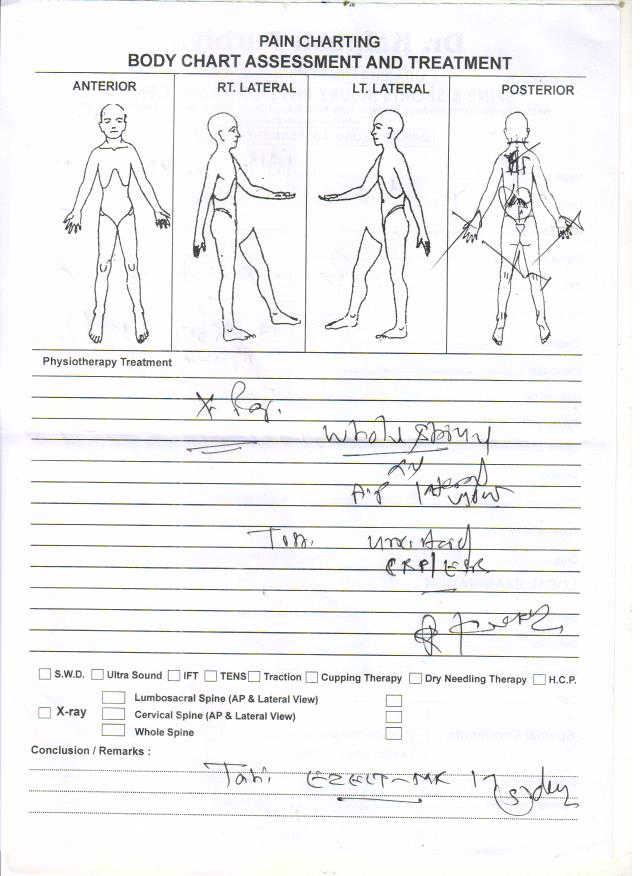 PAIN CHARTING
BODY CHART ASSESSMENT AND TREATMENT
ANTERIOR RT. LATERAL LT. LATERAL POSTERIOR
Physiotherapy Treatment
X Ray.
Whole
A.P lateral view
Uric Acid
CRP/ESR
S.W.D. Ultra Sound IFT TENS Traction Cupping Therapy Dry Needling Therapy H.C.P.
X-ray
Lumbosacral Spine (AP & Lateral View)
Cervical Spine (AP & Lateral View)
Whole Spine
Conclusion / Remarks :